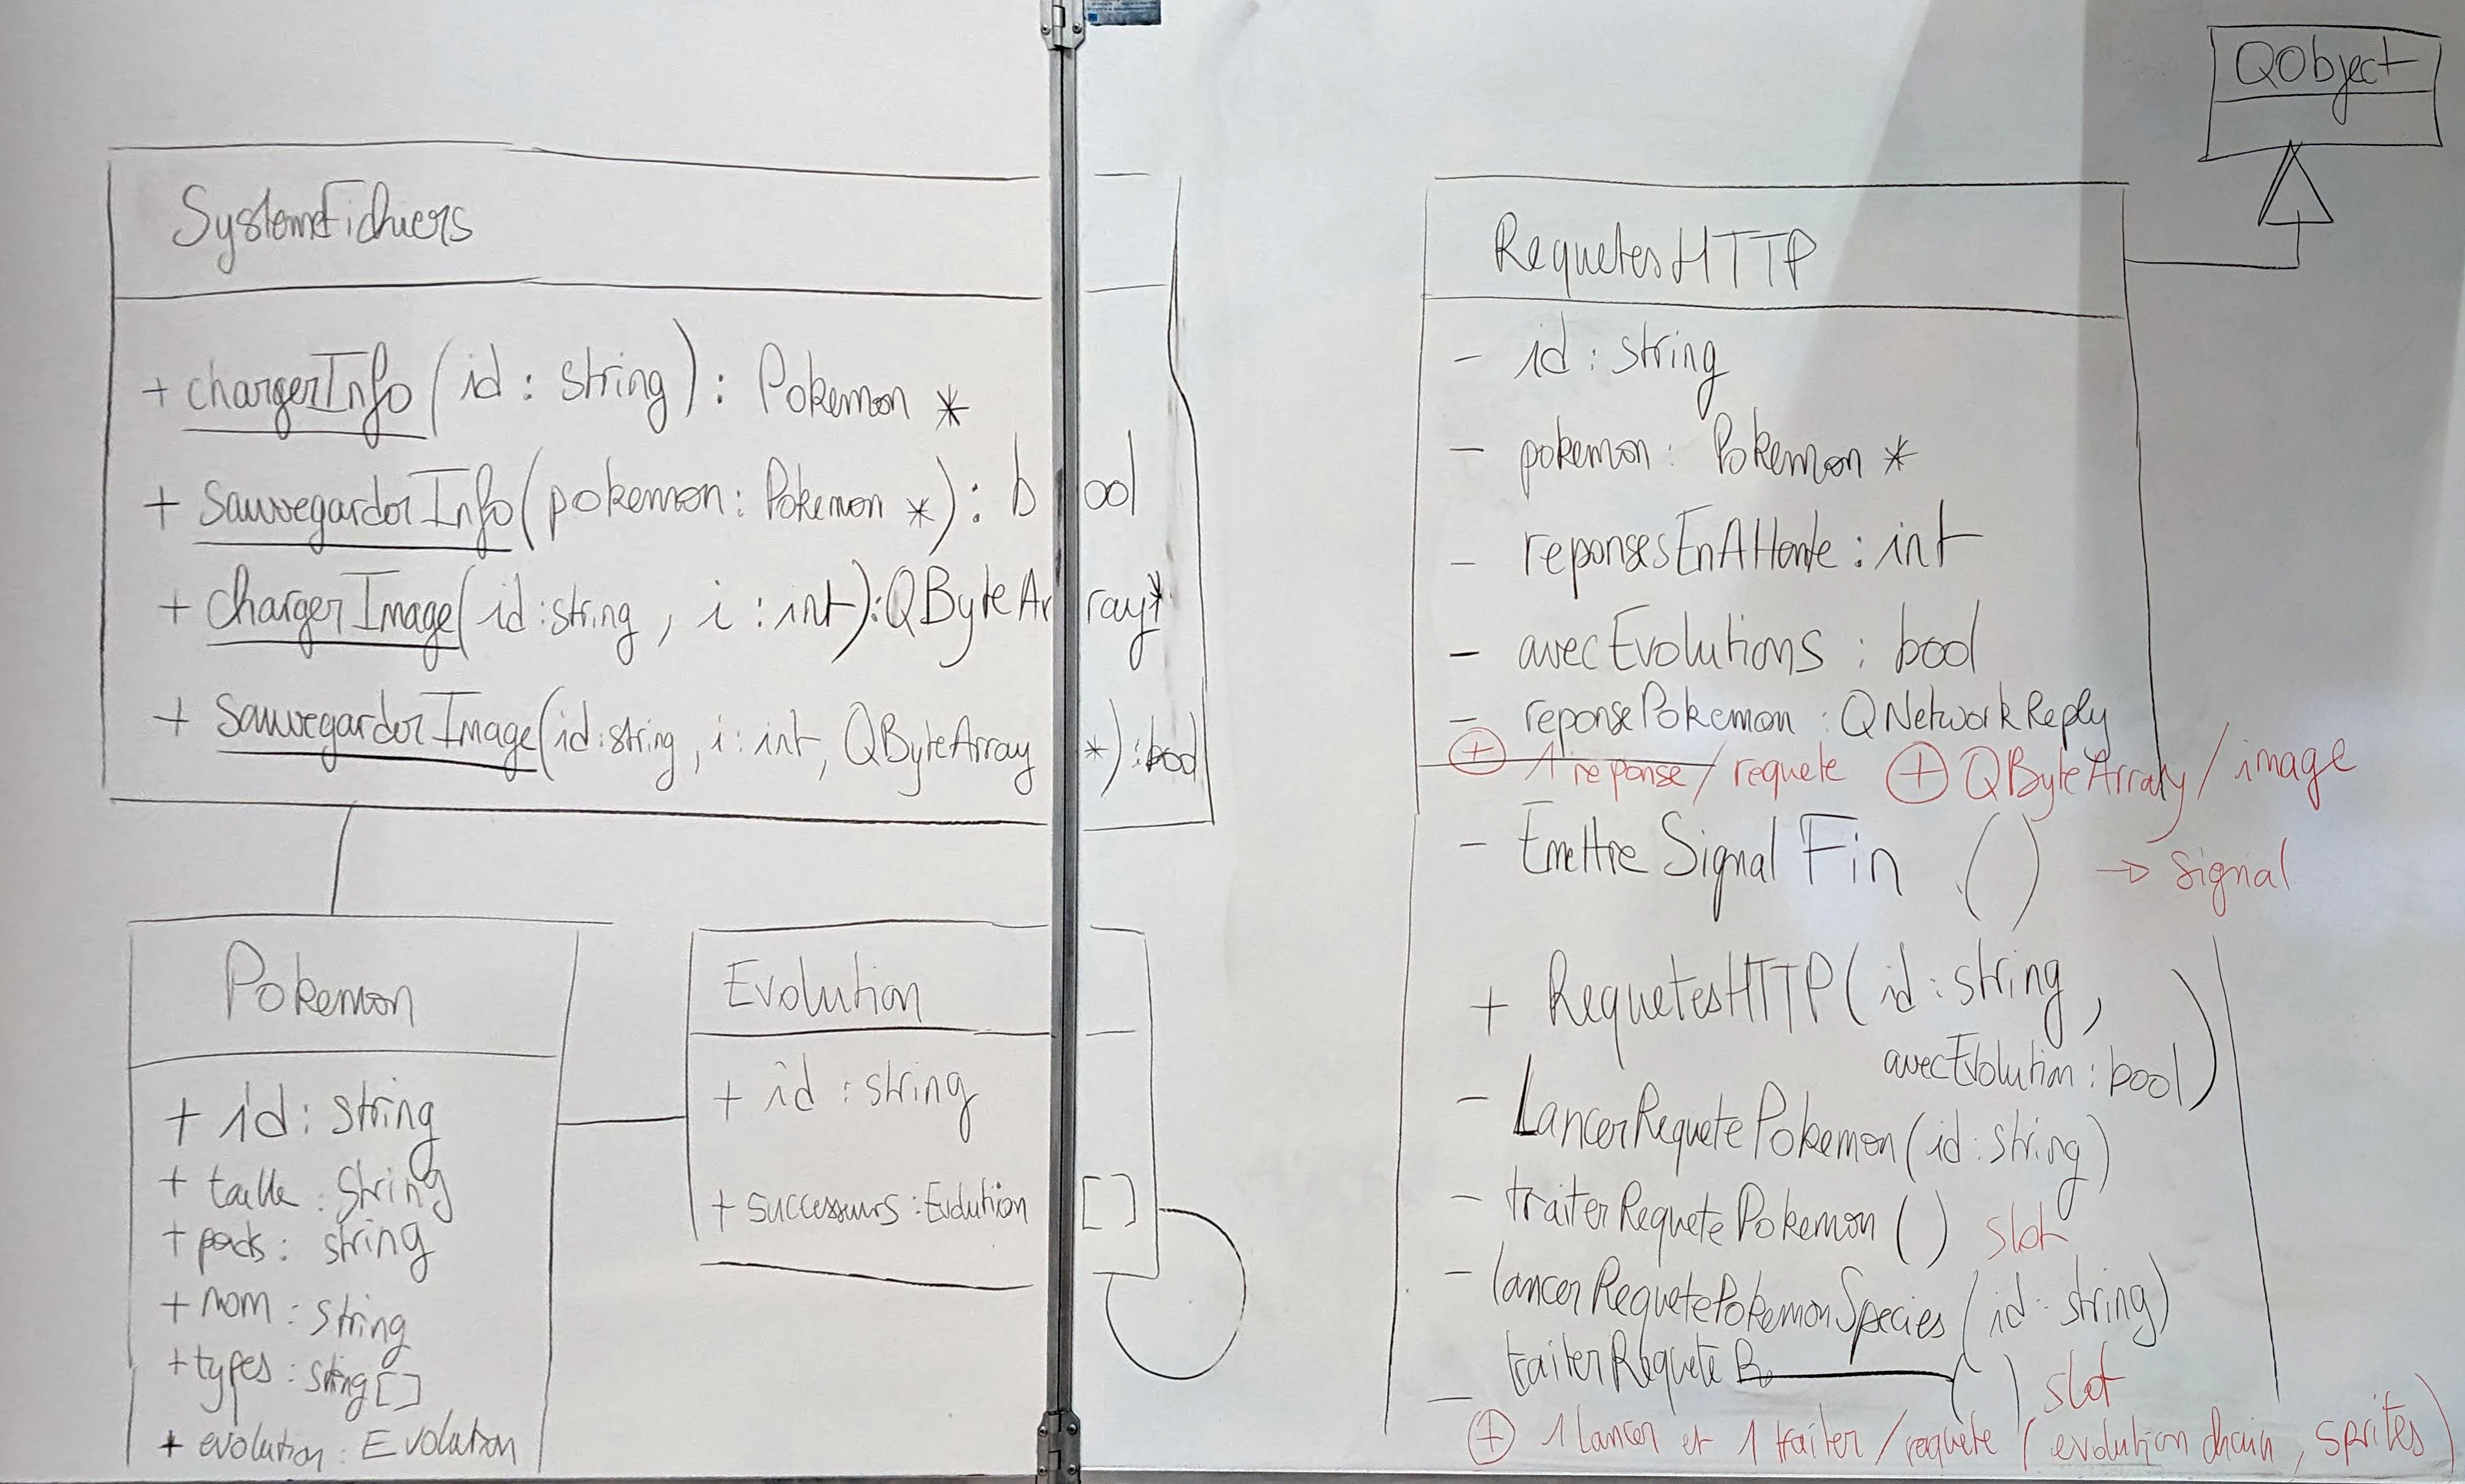 SystemeFichiers
+ chargerInfo(id : string) : Pokemon *
+ SauvegarderInfo(pokemon : Pokemon *) : bool
+ ChargerImage(id : string, i : int) : QByteArray*
+ SauvegarderImage(id : string, i : int, QByteArray *) : bool
Pokemon
+ id : string
+ taille : String
+ poids : string
+ nom : string
+ types : string[]
+ evolution : Evolution
Evolution
+ id : string
+ successeurs : Evolution []
QObject
RequetesHTTP
- id : string
- pokemon : Pokemon *
- reponsesEnAttente : int
- avecEvolutions : bool
- reponsePokemon : QNetworkReply
+ 1 reponse / requete + QByteArray / image
- Emettre Signal Fin () → signal
+ RequetesHTTP(id : string,
avecEvolution : bool)
- LancerRequetePokemon(id : string)
- traiterRequetePokemon() slot
- lancerRequetePokemonSpecies(id : string)
- traiterRequete () slot
+ 1 lancer et 1 traiter / requête (evolution chain, sprites)